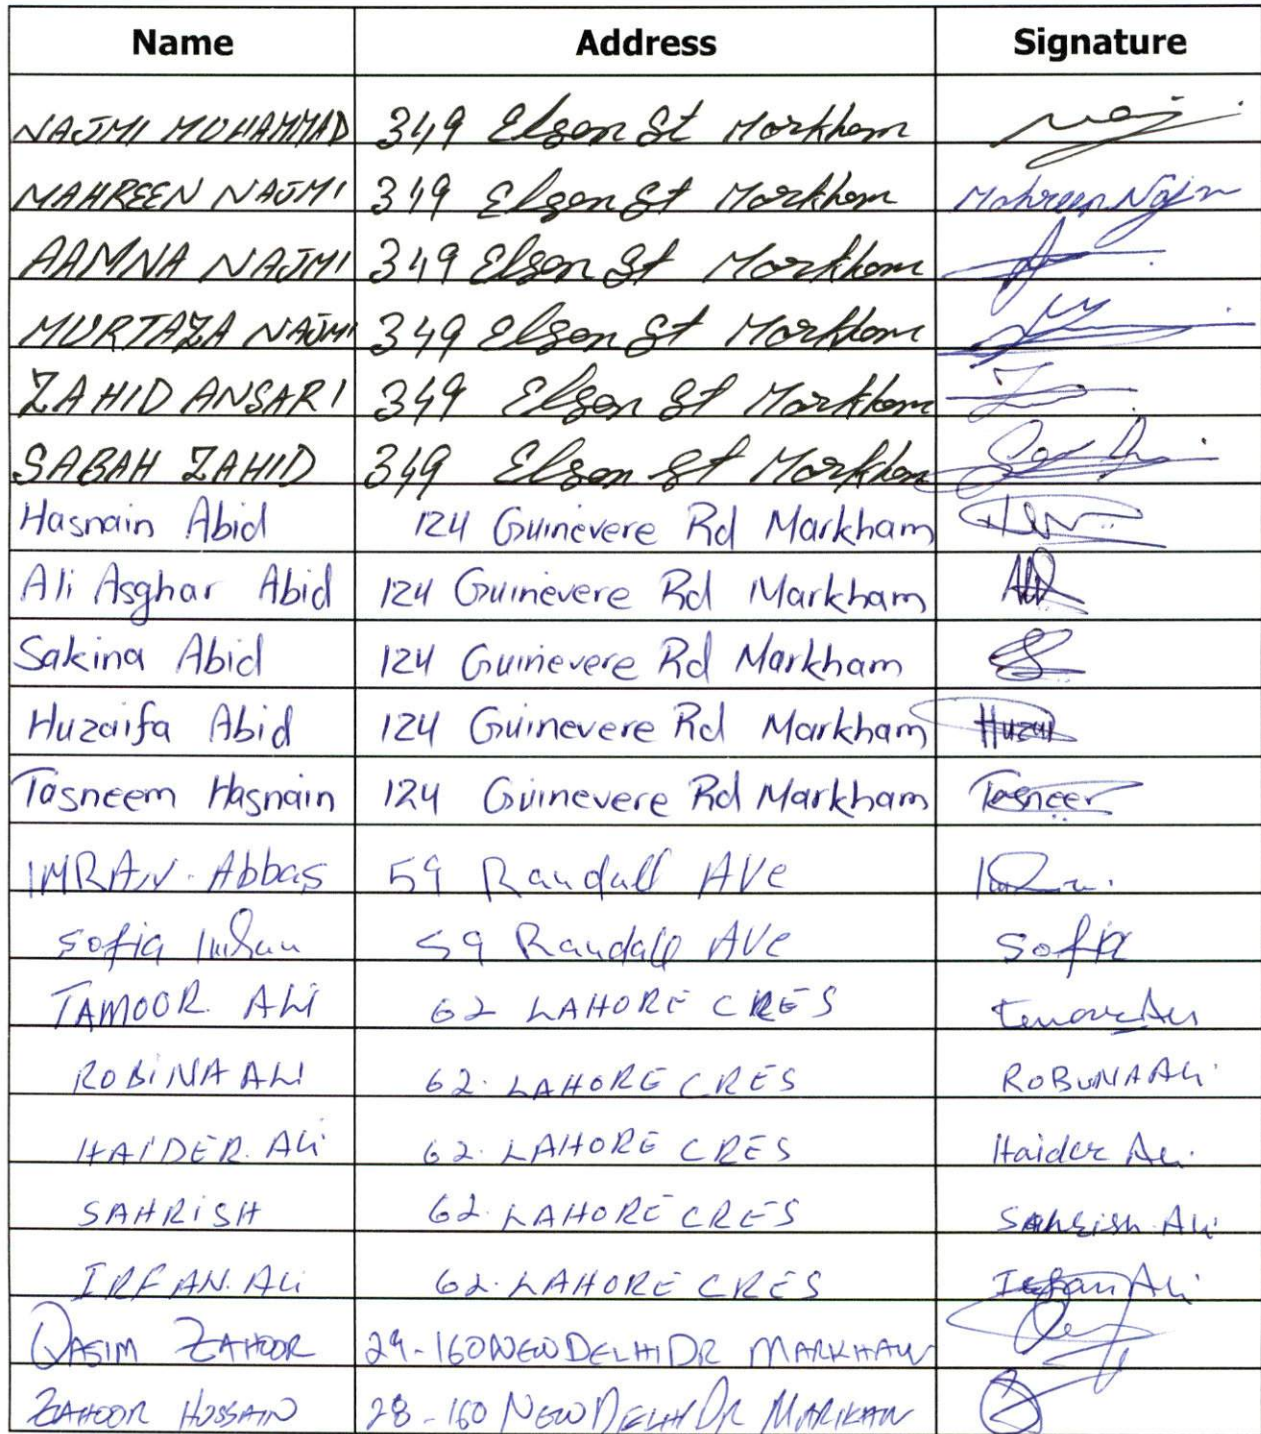 Name Address Signature
NAJMI MUHAMMAD 349 Elson St Markham
MAHREEN NAJMI 349 Elson St Markham Mahreen Najm
AAMNA NAJMI 349 Elson St Markham
MURTAZA NAJMI 349 Elson St Markham
ZAHID ANSARI 349 Elson St Markham
SABAH ZAHID 349 Elson St Markham
Hasnain Abid 124 Guinevere Rd Markham
Ali Asghar Abid 124 Guinevere Rd Markham
Sakina Abid 124 Guinevere Rd Markham
Huzaifa Abid 124 Guinevere Rd Markham Huzai
Tasneem Hasnain 124 Guinevere Rd Markham Tasneer
IMRAN. Abbas 59 Randall AVe
Sofia Imran 59 Randall AVe Sofia
TAMOOR. ALi 62 LAHORE CRES
ROBiNA ALi 62. LAHORE CRES ROBUNA ALi
HAIDER. ALi 62. LAHORE CRES Haider Ali
SAHRiSH 62. LAHORE CRES Sahrish Ali
IRFAN. ALi 62. LAHORE CRES Irfan Ali
QASIM ZAHOOR 29-160 NEW DELHI DR MARKHAM
ZAHOOR HUSSAIN 28-160 NEW DELHI DR MARKHAM